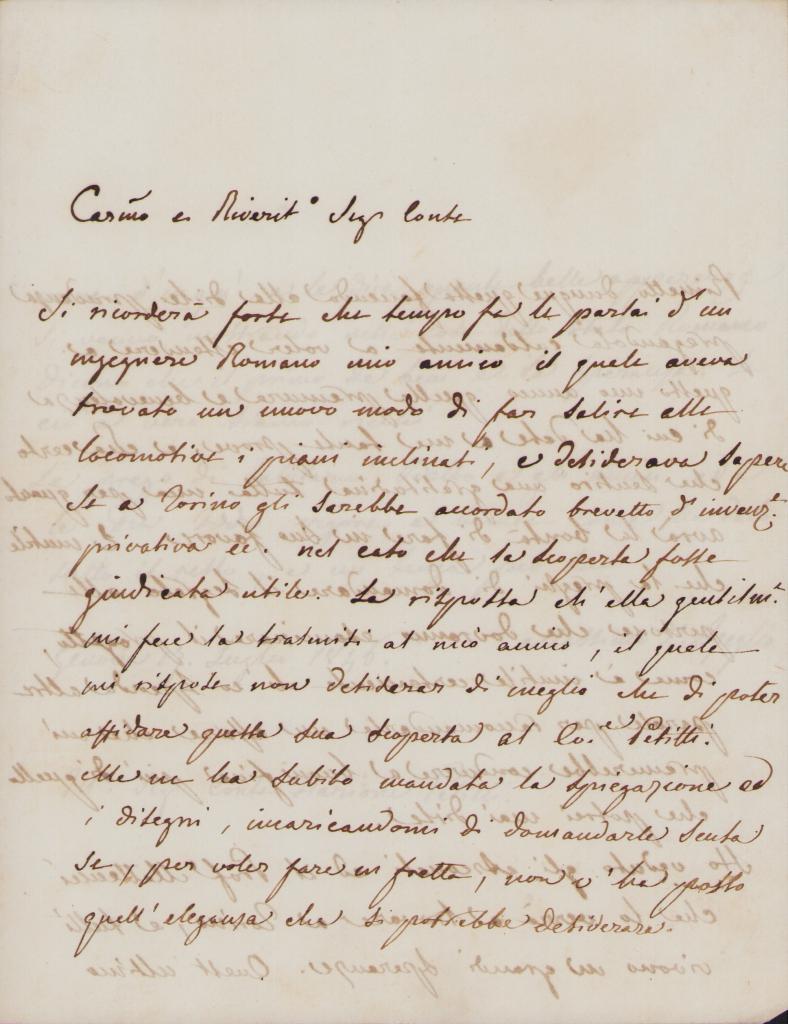 Carmo e Riverito Sigr Conte
Si ricorderà forse che tempo fa le parlai d'un
ingegnere Romano mio amico il quale aveva
trovato un nuovo modo di far salire alle
locomotive i piani inclinati, e desiderava sapere
se a Torino gli sarebbe accordato brevetto d'invenz.e
privativa ec. nel caso che la scoperta fosse
giudicata utile. La risposta ch'ella gentilmt.
mi fece la trasmisi al mio amico, il quale
mi rispose non desiderar di meglio che di poter
affidare questa sua scoperta al Co.e Petitti.
Me ne ha subito mandata la spiegazione ed
i disegni, incaricandomi di domandarle scusa
se, per voler fare in fretta, non v'ha posto
quell'eleganza che si potrebbe desiderare.